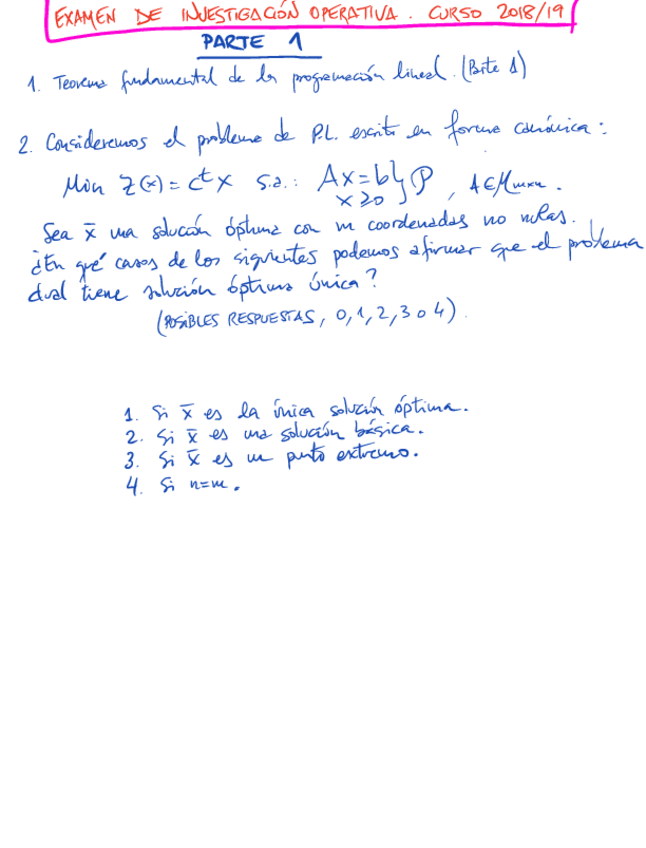 EXAMEN DE INVESTIGACIÓN OPERATIVA. CURSO 2018/19
PARTE 1
1. Teorema fundamental de la programación lineal. (Parte 1)
2. Consideremos el problema de P.L. escrito en forma canónica:
Min Z(x) = cᵗx s.a.: Ax=b } P, A∈Mmxn.
x≥0
Sea x̄ una solución óptima con m coordenadas no nulas.
¿En qué casos de los siguientes podemos afirmar que el problema
dual tiene solución óptima única?
(POSIBLES RESPUESTAS, 0,1,2,3 o 4).
1. Si x̄ es la única solución óptima.
2. Si x̄ es una solución básica.
3. Si x̄ es un punto extremo.
4. Si n=m.